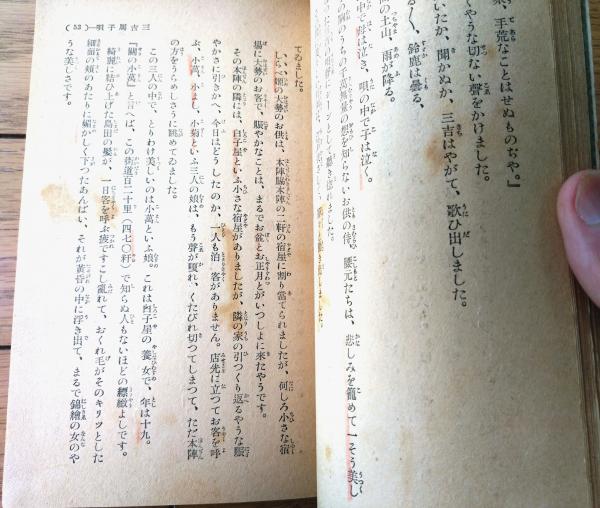 衆、手荒なことはせぬものぢや。』
くやうな切ない聲をかけました。
いたか、聞かぬか、三吉はやがて、歌ひ出しました。
るく、鈴鹿は曇る、
の土山、雨が降る。
は泣き、唄の中で子は泣く。
のうちの千萬無量の想を知らないお供の侍、腰元たちは、悲しみを籠めて一そう美し
(53)―唄子馬吉三
てゐました。
しらべ姫の大勢のお供は、本陣脇本陣の二軒の宿屋に割り當てられましたが、何しろ小さな宿
場に大勢のお客で、賑やかなことは、まるでお盆とお正月とがいつしよに來たやうです。
その本陣の隣には、臼子屋といふ小さな宿屋がありましたが、隣の家の引つくり返るやうな賑
やかさに引きかへ、今日はどうしたのか、一人も泊り客がありません。店先に立つてお客を呼
ぶ、小萬、小まし、小菊といふ三人の娘は、もう聲が嗄れ、くたびれ切つてしまつて、ただ本陣
の方をうらめしさうに眺めてゐました。
この三人の中で、とりわけ美しいのは小萬といふ娘。これは臼子屋の養女で、年は十九。
『關の小萬』と言へば、この街道百二十里（四七〇粁）で知らぬ人もないほどの縹緻よしです。
綺麗に結ひ上げた島田の髪が、一日客を呼ぶ疲れですこし亂れて、おくれ毛がそのキリッとした
細面の頬のあたりに媚かしく下つたあんばい、それが黄昏の中に浮き出て、まるで錦繪の女のや
うな美しさです。